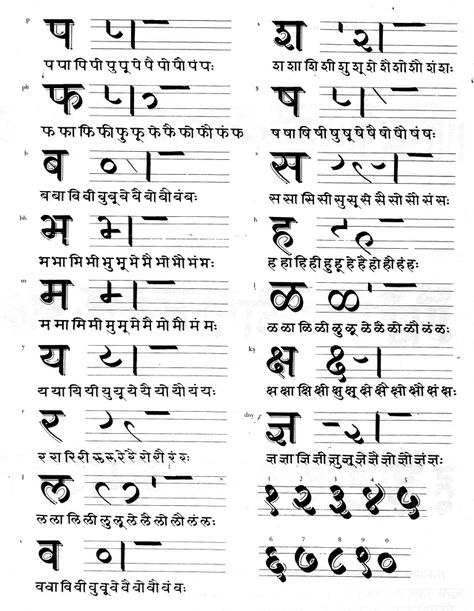 p प
प पा पि पी पु पू पे पै पो पौ पं पः
ph फ
फ फा फि फी फु फू फे फै फो फौ फं फ
b ब
ब बा बि बी बु बू बे बै बो बौ बं बः
bh भ
भ भा भि भी भु भू भे भै भो भौ भं भः
m म
म मा मि मी मु मू मे मै मो मौ मं मः
y य
य या यि यी यु यू ये यै यो यौ यं यः
r र
र रा रि री रु रू रे रै रो रौ रं रः
l ल
ल ला लि ली लु लू ले लै लो लौ लं लः
v व
व वा वि वी वु वू वे वै वो वौ वं वः
ś श
श शा शि शी शु शू शे शै शो शौ शं शः
ṣ ष
ष षा षि षी षु षू षे षै षो षौ षं षः
s स
स सा सि सी सु सू से सै सो सौ सं सः
h ह
ह हा हि ही हु हू हे है हो हौ हं हः
ḷ ळ
ळ ळा ळि ळी ळु ळू ळे ळै ळो ळौ ळं ळः
kṣ क्ष
क्ष क्षा क्षि क्षी क्षु क्षू क्षे क्षै क्षो क्षौ क्षं क्षः
dny ज्ञ
ज्ञ ज्ञा ज्ञि ज्ञी ज्ञु ज्ञू ज्ञे ज्ञै ज्ञो ज्ञौ ज्ञं ज्ञः
1 2 3 4 5
१ २ ३ ४ ५
6 7 8 9 0
६ ७ ८ ९ ०